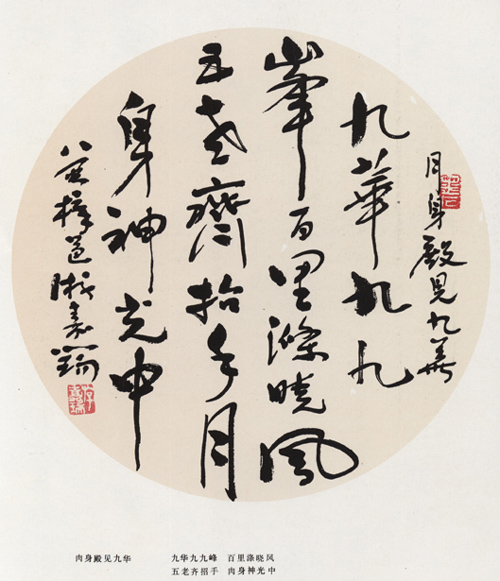 月身殿見九華
九華九九
峯百里滌曉風
五老齊招手月
身神光中
肉身殿见九华
九华九九峰 百里涤晓风
五老齐招手 肉身神光中